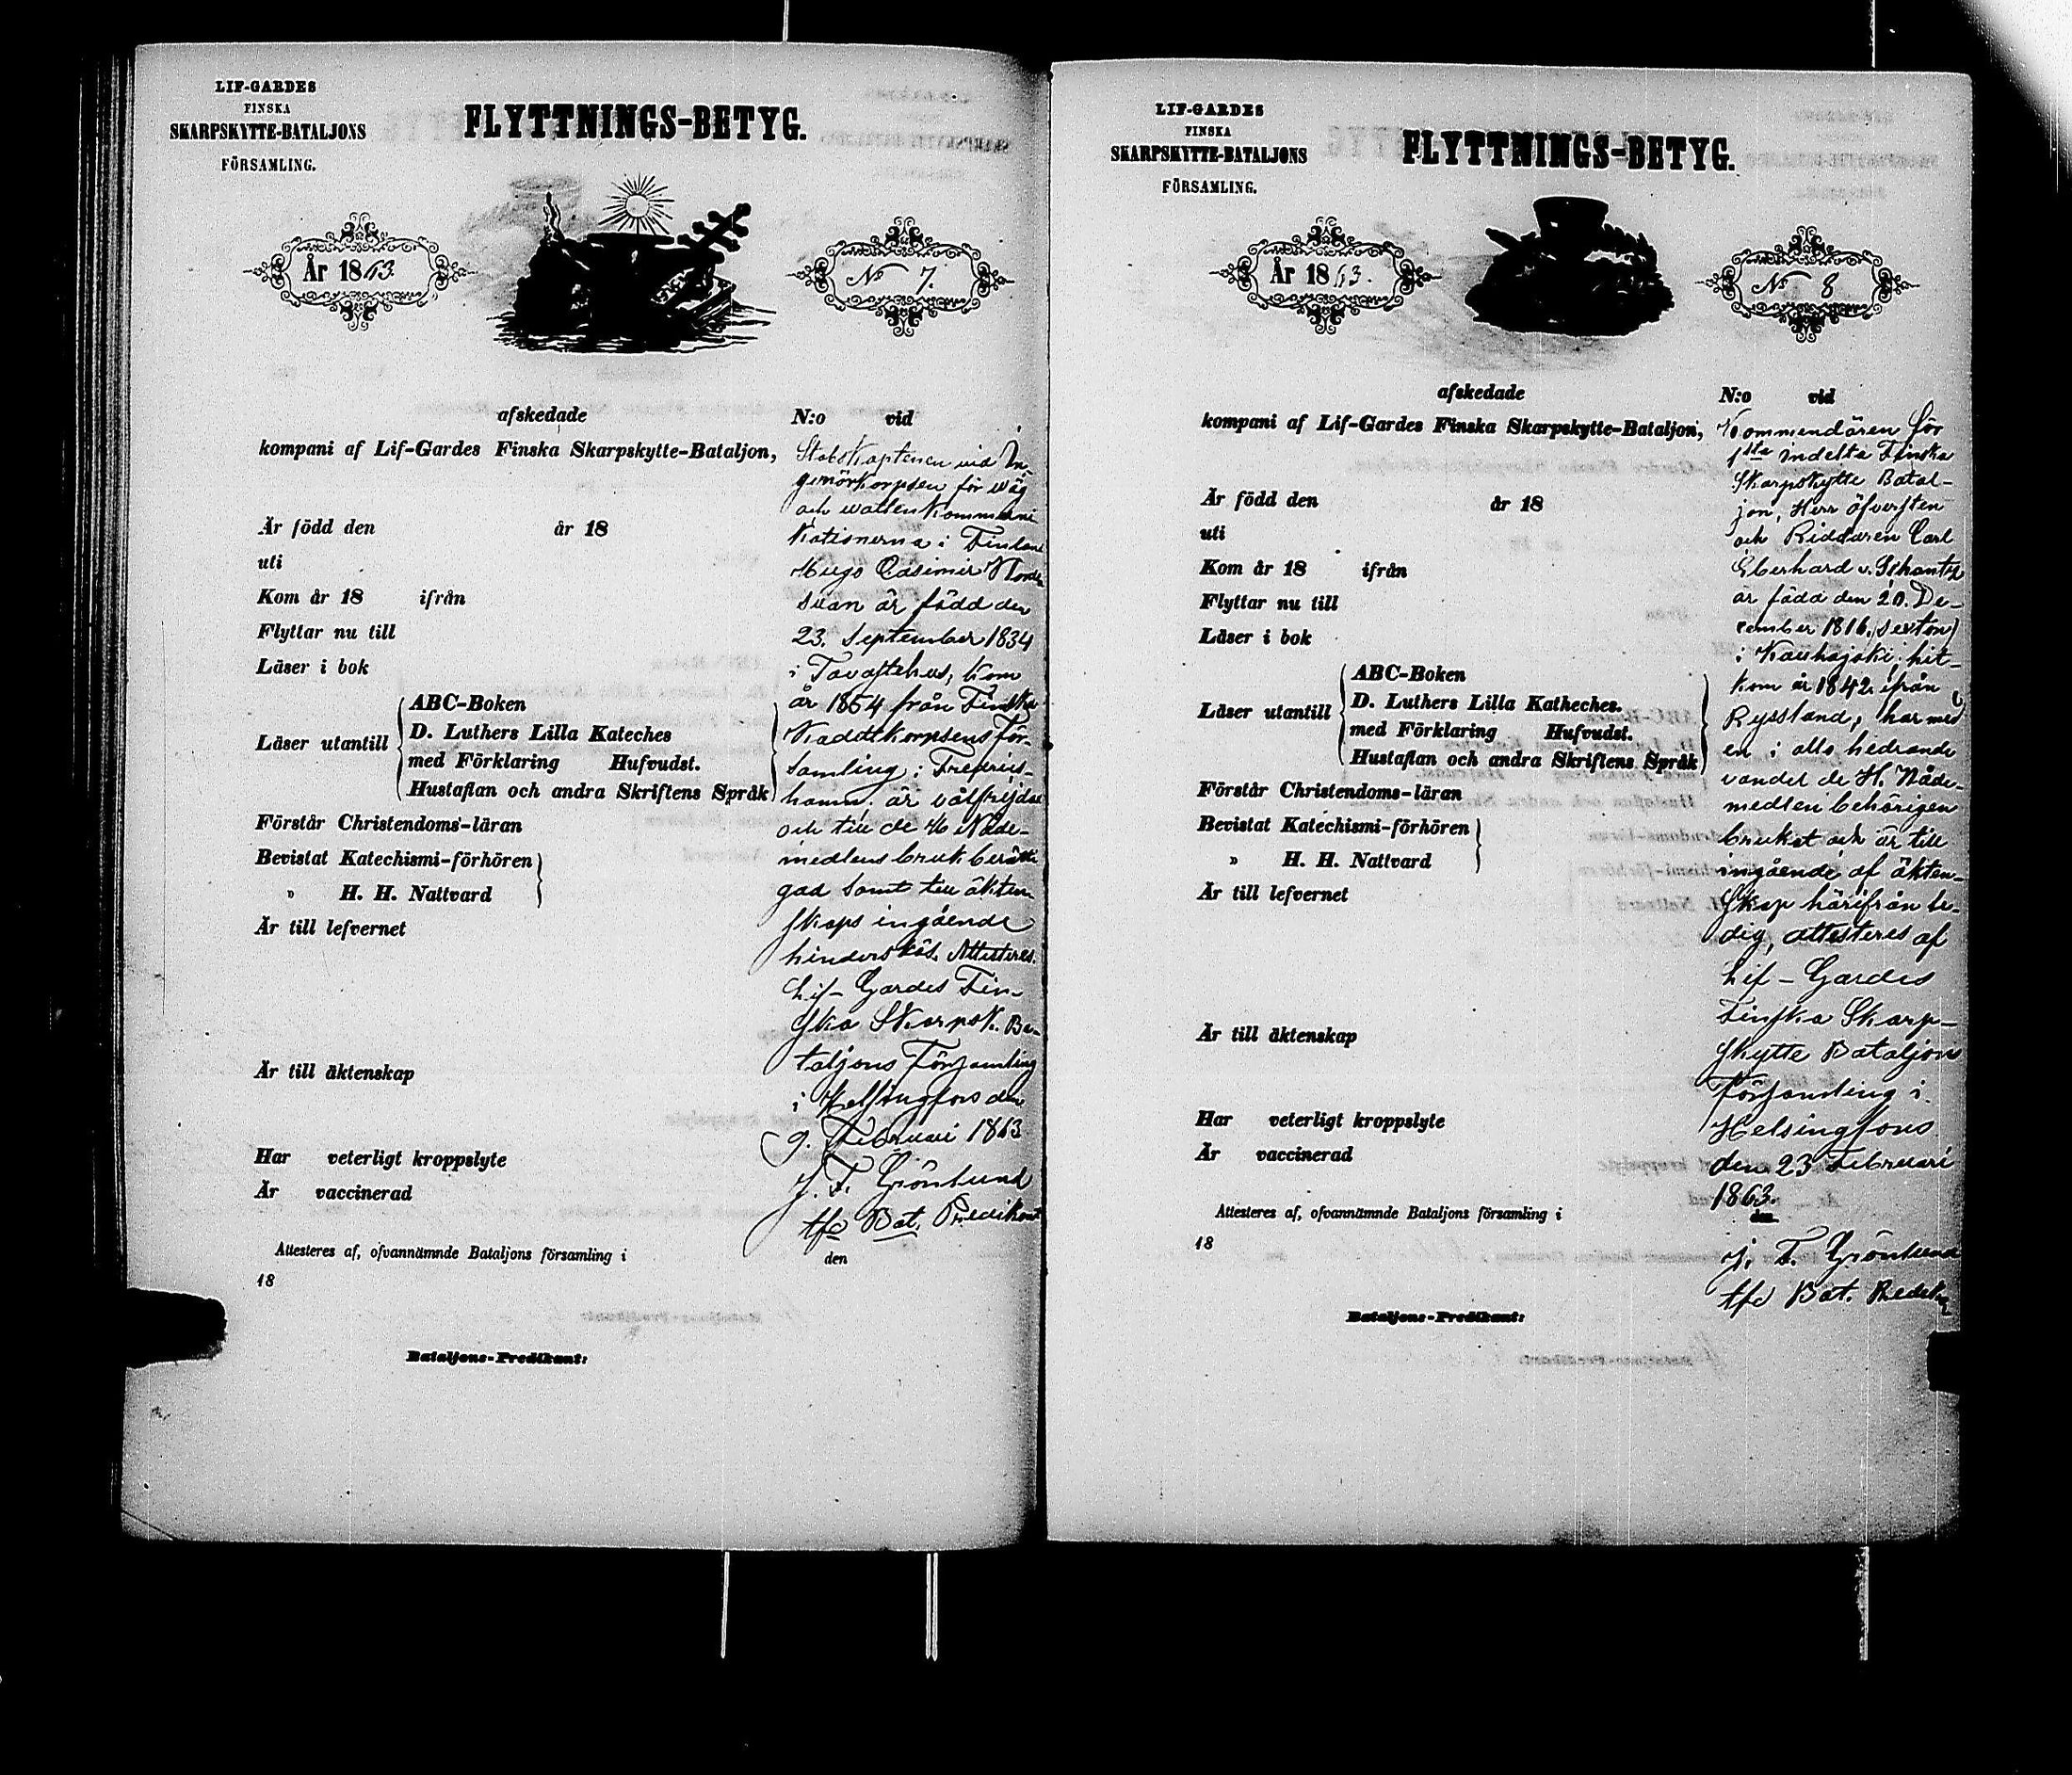 LIF-GARDES
FINSKA
SKARPSKYTTE-BATALJONS
FÖRSAMLING.
FLYTTNINGS-BETYG.
År 1863.
No 7.
afskedade N:o vid
kompani af Lif-Gardes Finska Skarpskytte-Bataljon,
Är född den år 18
uti
Kom år 18 ifrån
Flyttar nu till
Läser i bok
Läser utantill
ABC-Boken
D. Luthers Lilla Kateches
med Förklaring Hufvudst.
Hustaflan och andra Skriftens Språk
Förstår Christendoms-läran
Bevistat Katechismi-förhören
" H. H. Nattvard
Är till lefvernet
Är till äktenskap
Har veterligt kroppslyte
Är vaccinerad
Attesteres af, ofvannämnde Bataljons församling i den
18
Bataljons-Predikant:
StabsKaptenen vid In-
geniörkorpsen för väg
och vattenKommuni
Kationerna i Finland
Hugo Casimir Norden
svan är född den
23. September 1834
i Tavastehus, kom
år 1854 från Finska
Kadettkorpsens För-
samling i Fredrics-
hamn. är välfrejdad
och till de H. Nåde-
medlens bruk berätti
gad samt till äkten
skaps ingående
hinderslös. Attesteres.
Lif-Gardes Fin-
ska Skarpsk. Ba-
taljons Församling
i Helsingfors den
9. Februari 1863
J. F. Grönlund
tfd Bat. Predikant
LIF-GARDES
FINSKA
SKARPSKYTTE-BATALJONS
FÖRSAMLING.
FLYTTNINGS-BETYG.
År 1863.
No 8
afskedade N:o vid
kompani af Lif-Gardes Finska Skarpskytte-Bataljon,
Är född den år 18
uti
Kom år 18 ifrån
Flyttar nu till
Läser i bok
Läser utantill
ABC-Boken
D. Luthers Lilla Katheches.
med Förklaring Hufvudst.
Hustaflan och andra Skriftens Språk
Förstår Christendoms-läran
Bevistat Katechismi-förhören
" H. H. Nattvard
Är till lefvernet
Är till äktenskap
Har veterligt kroppslyte
Är vaccinerad
Attesteres af, ofvannämnde Bataljons församling i den
18
Bataljons-Predikant:
Kommendören för
1sta indelta Finska
Skarpskytte Batal-
jon, Herr öfversten
och Riddaren Carl
Eberhard v. Schantz
är född den 20. De-
cember 1816, (sexton)
i Kauhajoki, hit-
kom år 1842 ifrån
Ryssland, har med
en i allo hedrande
vandel de H. Nåde-
medlen behörigen
brukat och är till
ingående af äkten-
skap härifrån le-
dig, attesteres af
Lif-Gardes
Finska Skarp-
skytte Bataljons
Församling i
Helsingfors
den 23 Februari
1863.
J. F. Grönlund
tfd Bat. Predik